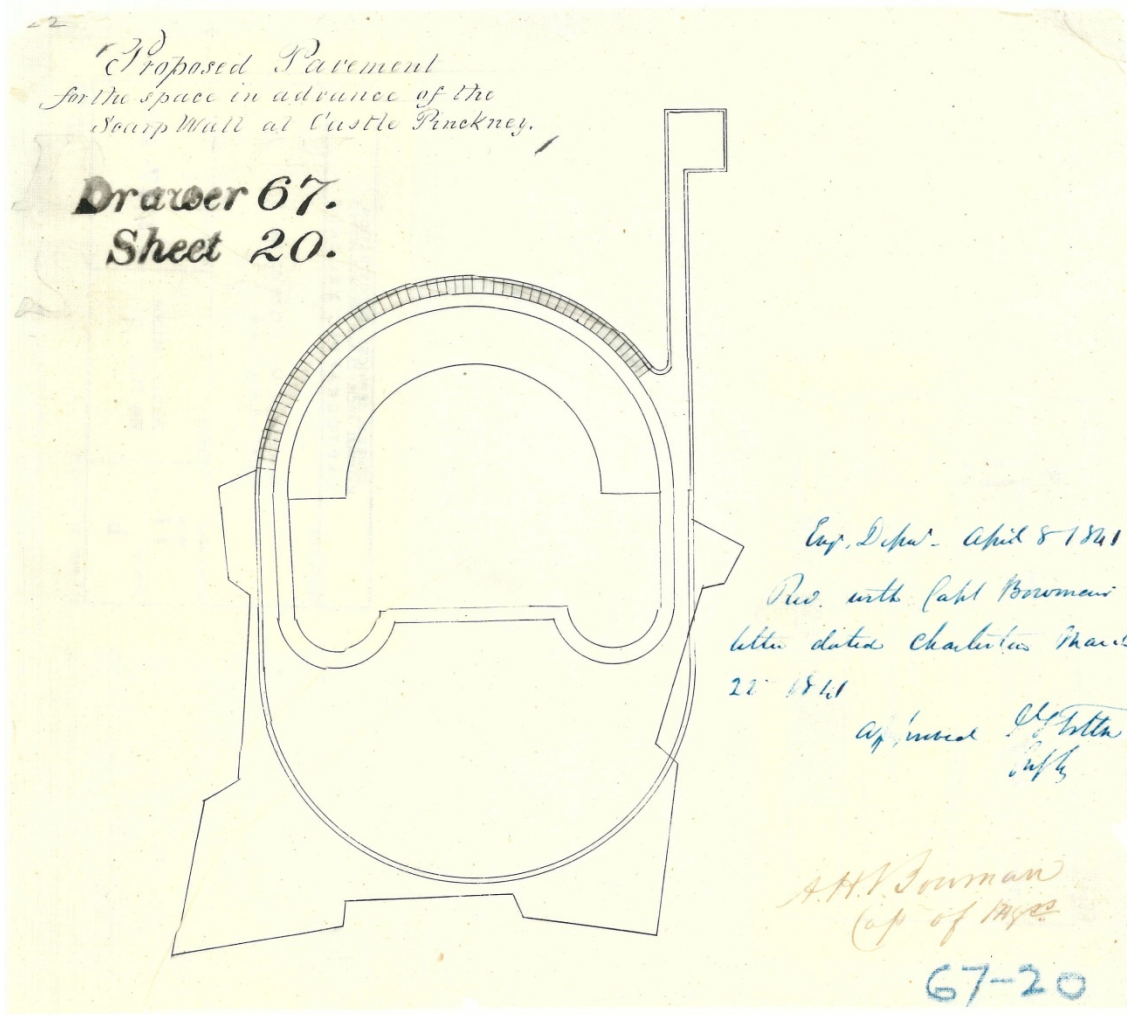 22
Proposed Pavement
for the space in advance of the
Scarp Wall at Castle Pinckney.
Drawer 67.
Sheet 20.
April 8 1841
with Capt Bowman's
letter dated Charleston March
22 1841
approved
A.H. Bowman
Cap of
67-20